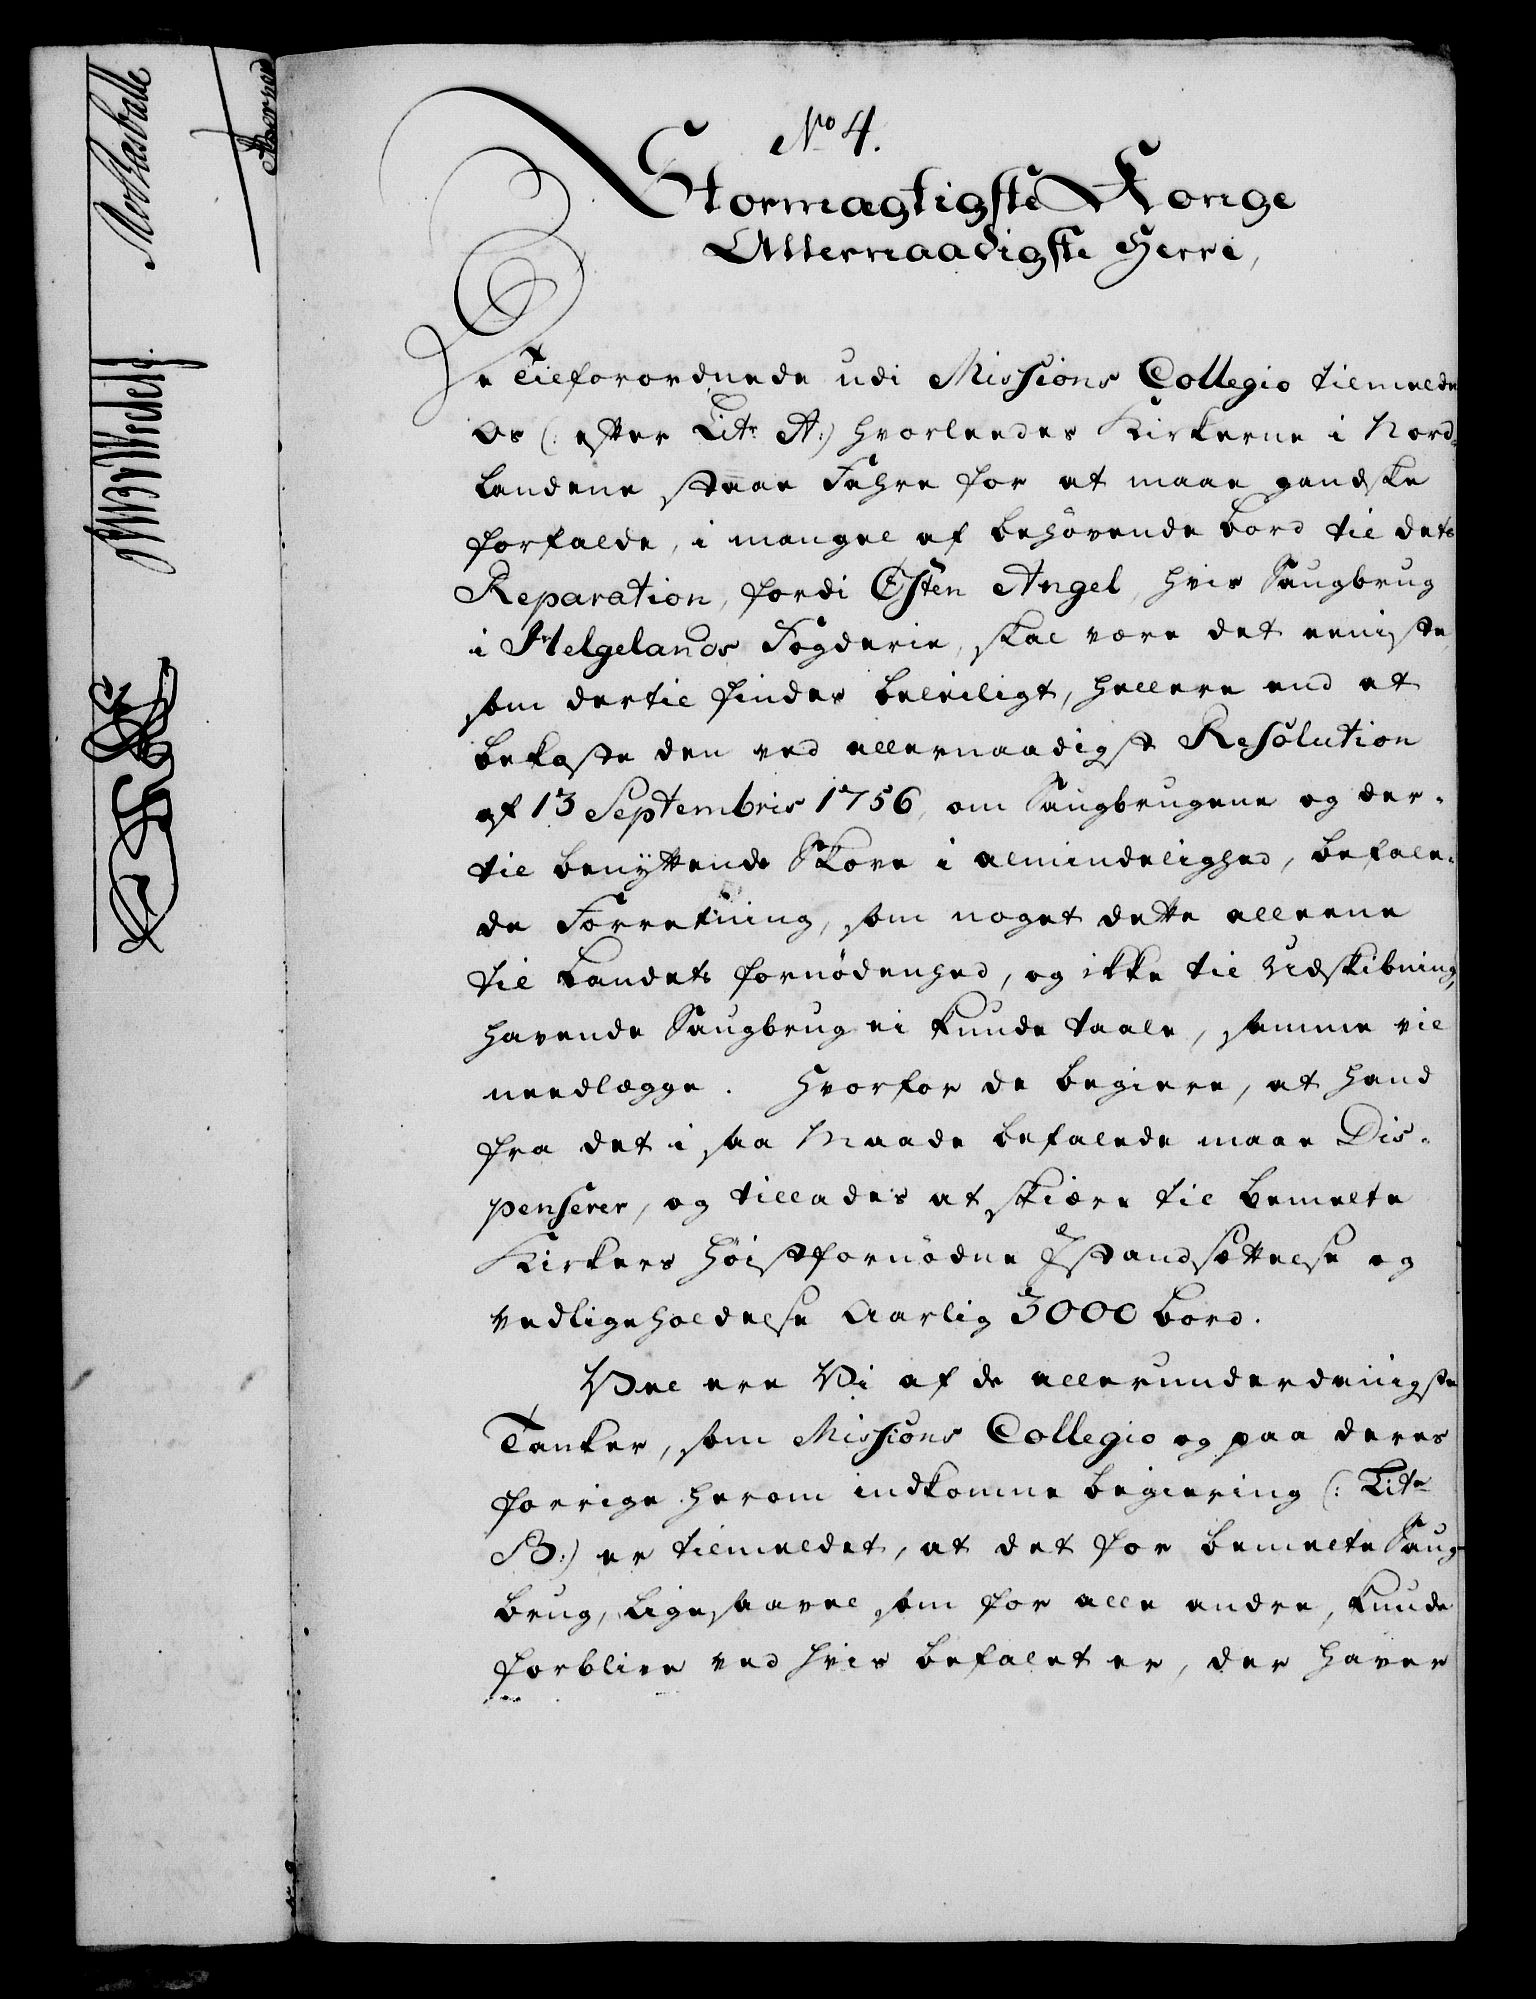 No 4.
Stormægtigste Konge
Allernaadigste Herre,
De Tilforordnede udi Missions Collegio tilmelde
Os (: efter Litr A:) hvorleedes Kirkerne i Nord-
landene staae Fahre for at maae gandske
forfalde, i mangel af behøvende bord til dets
Reparation, fordi Østen Angel, hvis Saugbrug
i Helgelands Fogderie, skal være det eeniste
som dertil findes beleiligt, hellere end at
bekoste den ved allernaadigst Resolution
af 13 Septembris 1756, om Saugbrugene og der-
til benyttende Skove i almindelighed, befale-
de Forretning, som noget dette alleene
til Landets fornødenhed, og ikke til Udskibning,
havende Saugbrug ei kunde taale, samme vil
needlægge. Hvorfor de begiere, at hand
fra det i saa Maade befalede maae Dis-
penserer, og tillades at skiære til bemelte
Kirkers høistfornødne Istandsættelse og
vedligeholdelse Aarlig 3000 bord.
Vel ere Vi af de allerunderdanigste
Tanker, som Missions Collegio og paa deres
forrige herom indkomne begiering (: Litr
B:) er tilmeldet, at det for bemelte Saug-
brug, ligesaavel som for alle andre, kunde
forblive ved hvis befalet er, der haver